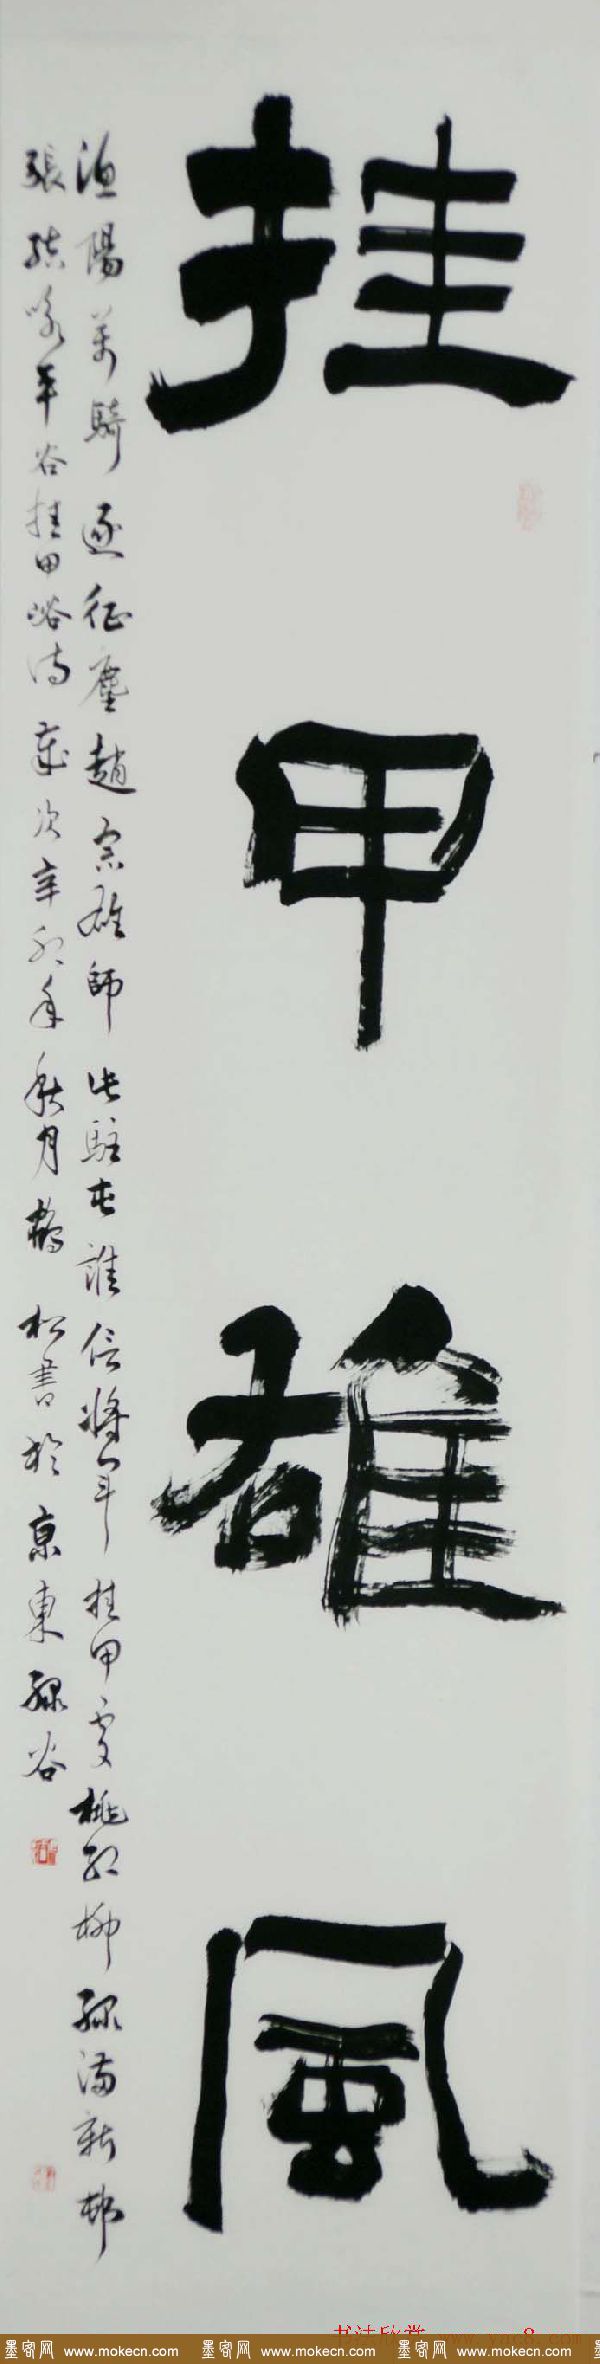 挂甲雄风
渔陽萬騎逐征塵趙宗雄師此駐屯誰信將軍挂甲處桃红柳綠满新邨
張結詠平谷挂甲峪诗歲次辛卯年秋月鶴松書於京東綠谷
书法欣赏 www.yac8.com
墨客网 www.mokecn.com 墨客网 www.mokecn.com 墨客网 www.mokecn.com